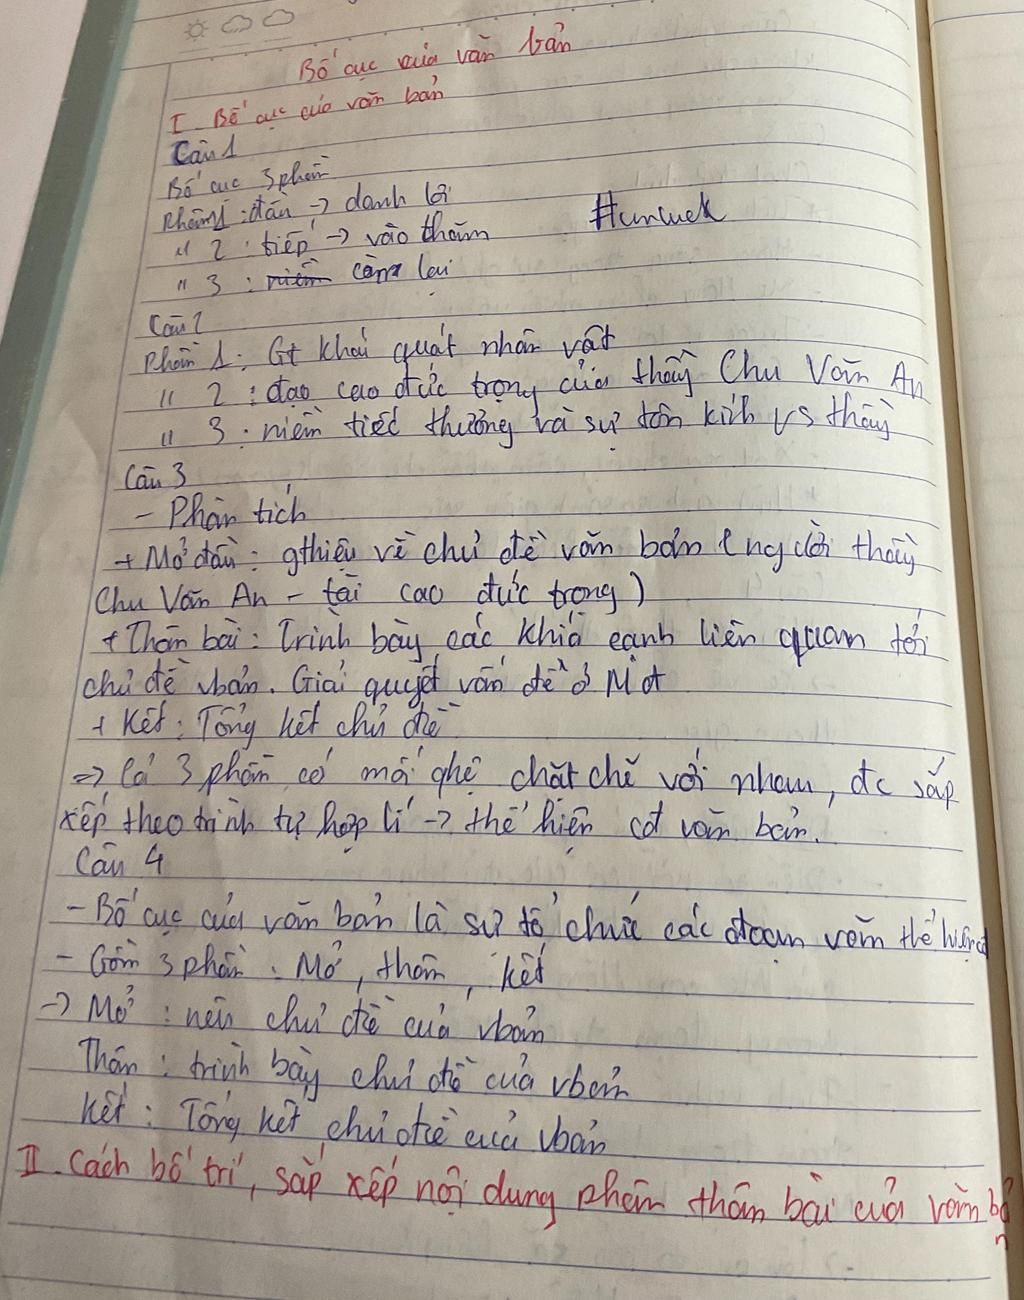 Bố cục của văn bản
I. Bố cục của văn bản
Câu 1
Bố cục 3 phần
Phần 1: đầu -> danh lợi
" 2: tiếp -> vào thăm
" 3: niềm còn lại
Câu 2
Phần 1: Gt khái quát nhân vật
" 2: đạo cao đức trọng của thầy Chu Văn An
" 3: niềm tiếc thương và sự tôn kính vs thầy
Câu 3
- Phân tích
+ Mở đầu: gthiệu về chủ đề văn bản (người thầy
Chu Văn An - tài cao đức trọng)
+ Thân bài: Trình bày các khía cạnh liên quan tới
chủ đề vbản. Giải quyết vấn đề ở Mở
+ Kết: Tổng kết chủ đề
=> Cả 3 phần có mối qhệ chặt chẽ với nhau, đc sắp
xếp theo trình tự hợp lí -> thể hiện cđ văn bản.
Câu 4
- Bố cục của văn bản là sự tổ chức các đoạn văn thể hiện cđ
- Gồm 3 phần: Mở, thân, kết
-> Mở: nêu chủ đề của vbản
Thân: trình bày chủ đề của vbản
Kết: Tổng kết chủ đề của vbản
II. Cách bố trí, sắp xếp nội dung phần thân bài của văn bản